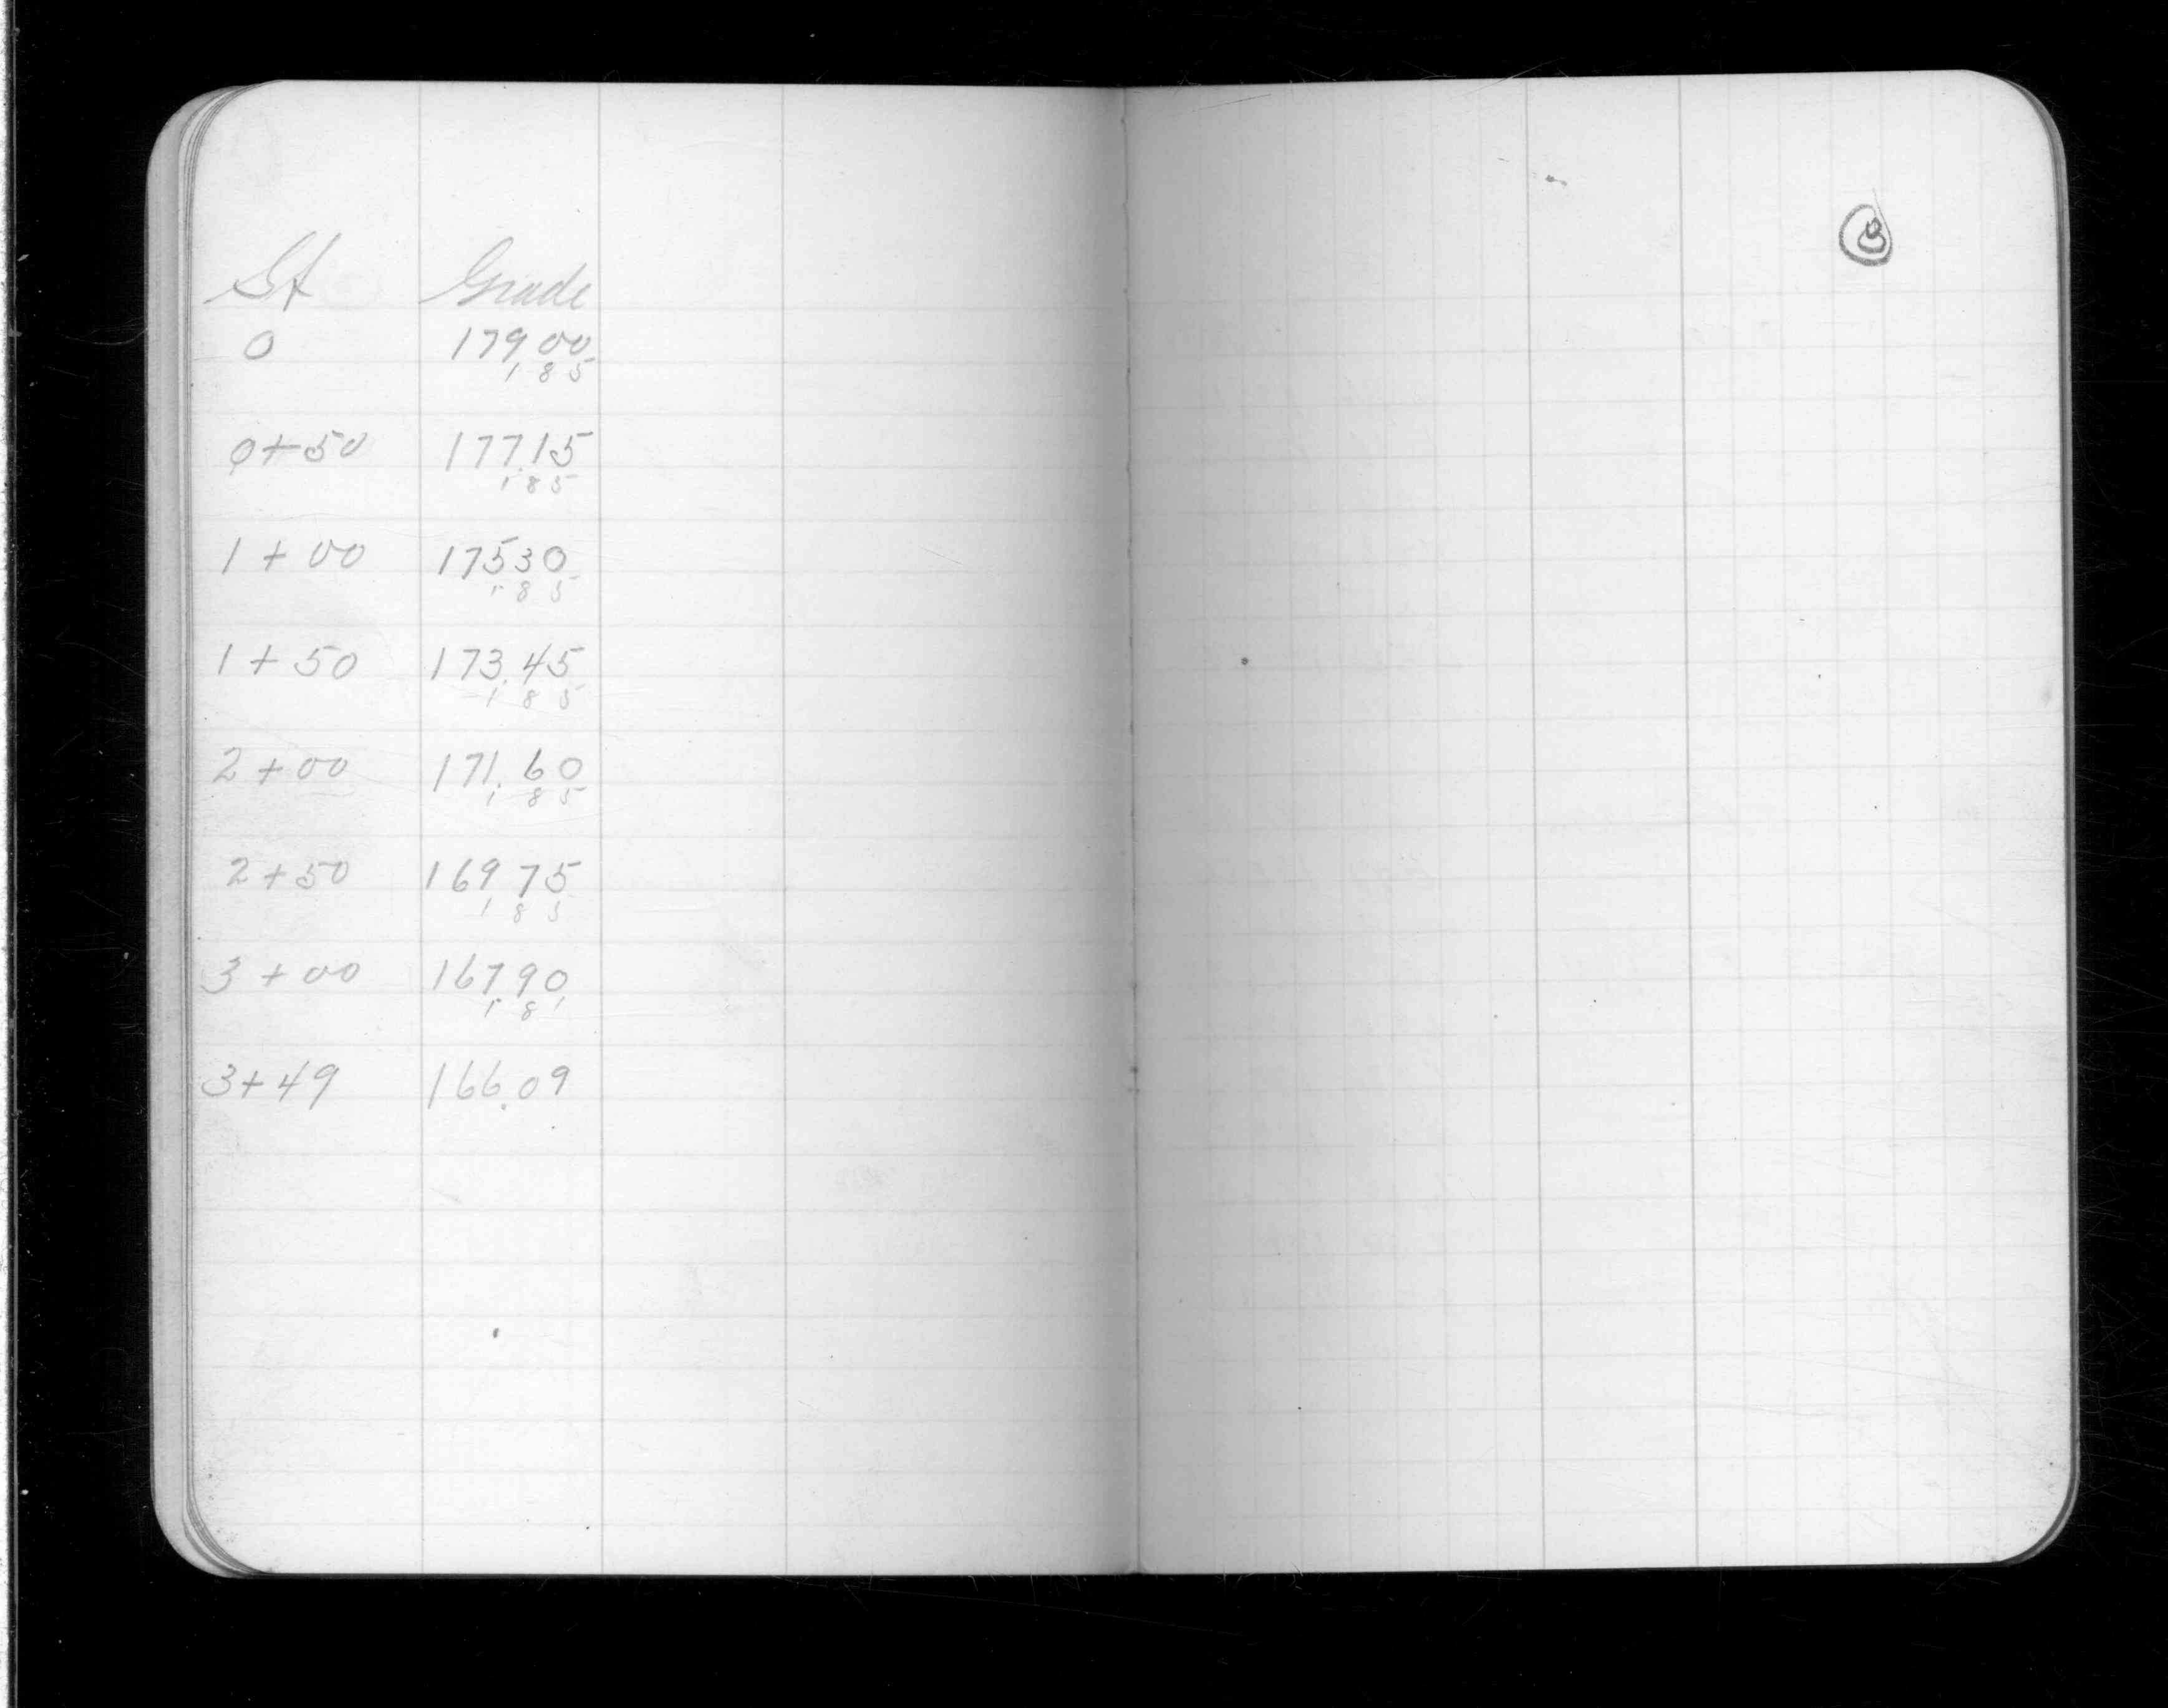 St Grade
0 179 00
1 8 5
0+50 177.15
1 8 5
1+00 17530
1 8 5
1+50 173.45
1 8 5
2+00 171.60
1 8 5
2+50 169 75
1 8 5
3+00 16790
1 8 1
3+49 166.09